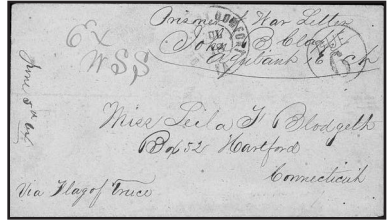 Prisoner of War Letter
John B Clapp
6 ex
WSS
June 5th 64
Miss Leila F Blodgett
Box 52 Hartford
Connecticut
Via Flag of Truce